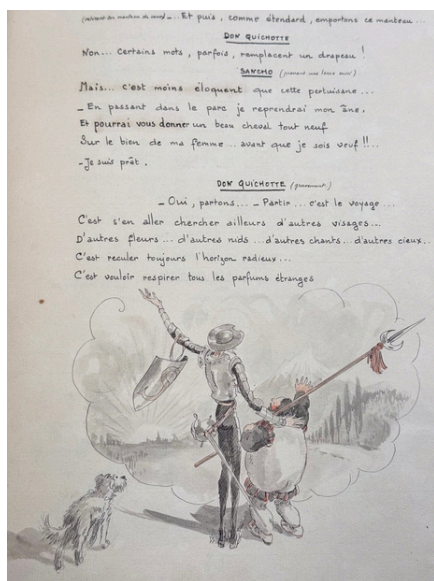 ... Et puis, comme étendard, emportons ce manteau...
DON QUICHOTTE
Non... Certains mots, parfois, remplacent un drapeau !
SANCHO (prenant une
Mais... c'est moins éloquent que cette pertuisane...
_ En passant dans le parc je reprendrai mon âne.
Et pourrai vous donner un beau cheval tout neuf
Sur le bien de ma femme... avant que je sois veuf !!..
- Je suis prêt.
DON QUICHOTTE (gravement)
_ Oui, partons... _ Partir... c'est le voyage...
C'est s'en aller chercher ailleurs d'autres visages...
D'autres fleurs... d'autres nids... d'autres chants... d'autres cieux..
C'est reculer toujours l'horizon radieux...
C'est vouloir respirer tous les parfums étranges